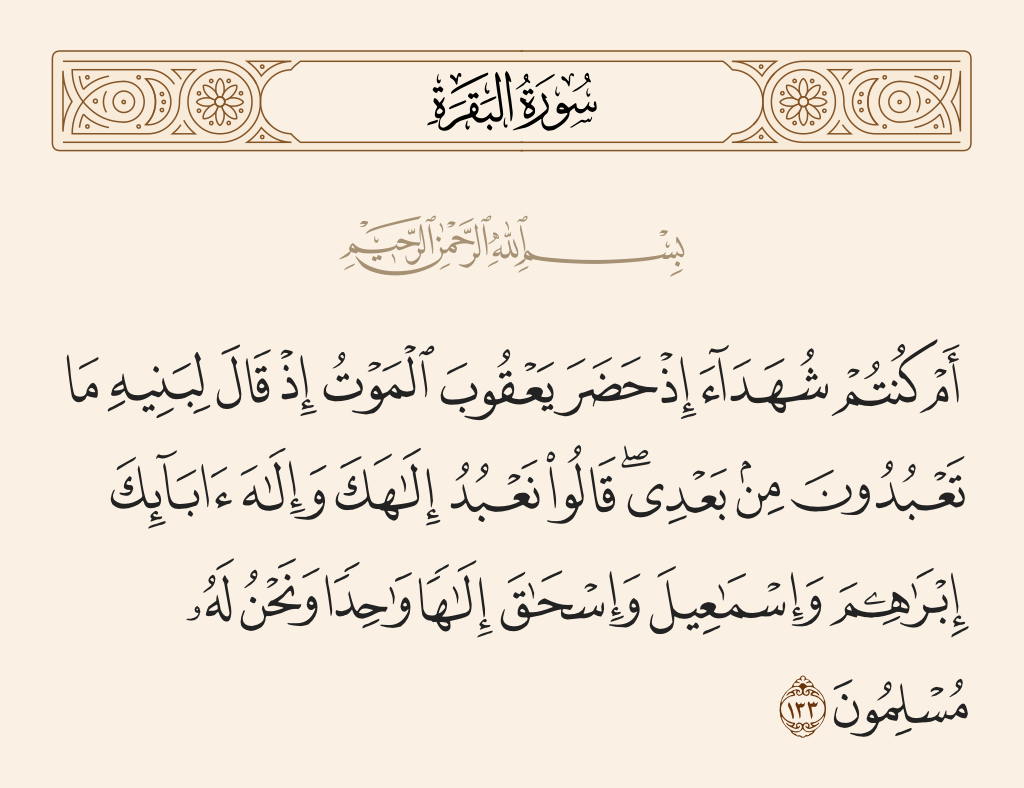 سُورَةُ البَقَرَةِ
بِسْمِ ٱللَّهِ ٱلرَّحْمَٰنِ ٱلرَّحِيمِ
أَمْ كُنتُمْ شُهَدَآءَ إِذْ حَضَرَ يَعْقُوبَ ٱلْمَوْتُ إِذْ قَالَ لِبَنِيهِ مَا
تَعْبُدُونَ مِنۢ بَعْدِى ۖ قَالُوا۟ نَعْبُدُ إِلَـٰهَكَ وَإِلَـٰهَ ءَابَآئِكَ
إِبْرَٰهِـۧمَ وَإِسْمَـٰعِيلَ وَإِسْحَـٰقَ إِلَـٰهًا وَٰحِدًا وَنَحْنُ لَهُۥ
مُسْلِمُونَ ١٣٣